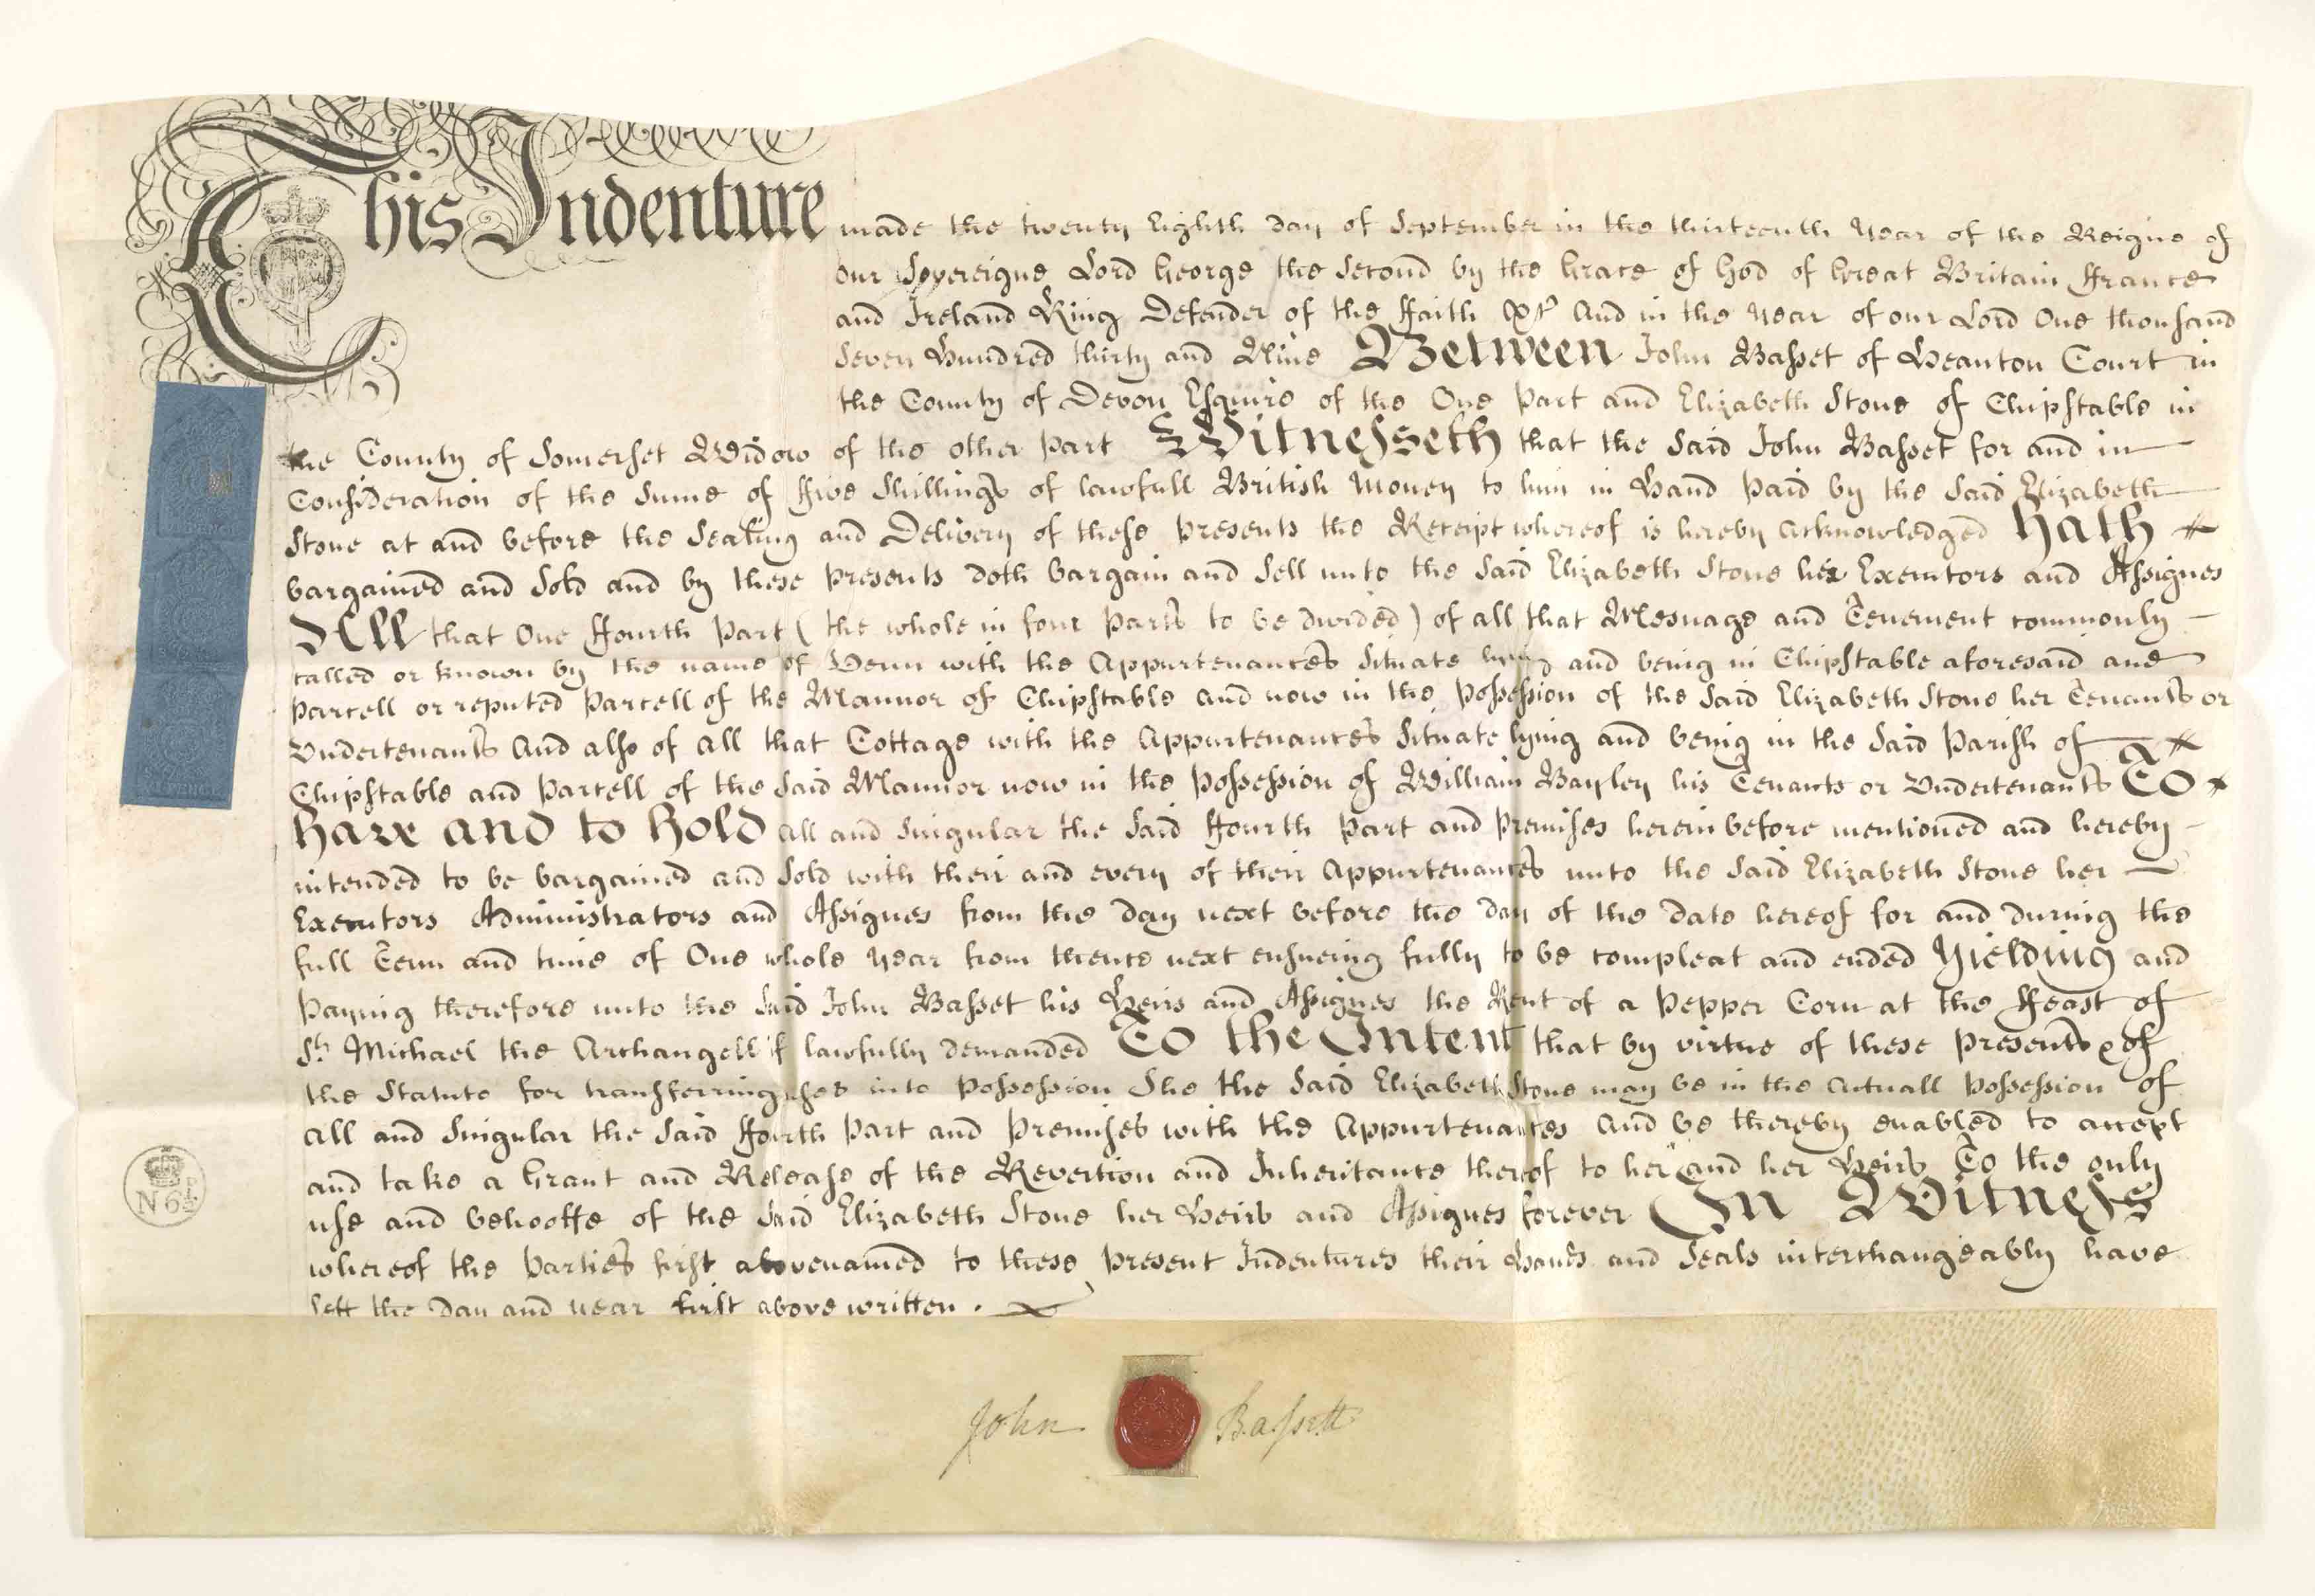 This Indenture made the twenty Eighth day of September in the thirteenth Year of the Reigne of
our Sovereigne Lord George the Second by the Grace of God of Great Britain ffrance
and Ireland King Defender of the ffaith &c And in the Year of our Lord One thousand
Seven Hundred thirty and Nine Between John Basset of Heanton Court in
the County of Devon Esquire of the One Part and Elizabeth Stone of Chipstable in
the County of Somerset Widow of the other Part Witnesseth that the Said John Basset for and in
Consideration of the Sume of ffive Shillings of lawfull British Money to him in Hand Paid by the Said Elizabeth
Stone at and before the Sealing and Delivery of these Presents the Receipt whereof is hereby Acknowledged Hath
bargained and Sold and by these Presents doth bargain and Sell unto the Said Elizabeth Stone her Executors and Assignes
All that One ffourth Part ( the whole in four Parts to be divided ) of all that Mesuage and Tenement commonly
called or known by the name of Venn with the Appurtenances Situate lying and being in Chipstable aforesaid and
Parcell or reputed Parcell of the Mannor of Chipstable And now in the Possession of the Said Elizabeth Stone her Tenants or
Undertenants And also of all that Cottage with the Appurtenances Situate lying and being in the Said Parish of
Chipstable and Parcell of the Said Mannor now in the Possession of William Bayley his Tenants or Undertenants To
have and to hold all and Singular the Said ffourth Part and Premises herein before mentioned and hereby
intended to be bargained and Sold with their and every of their Appurtenances unto the Said Elizabeth Stone her
Executors Administrators and Assignes from the day next before the day of the date hereof for and during the
full Term and time of One whole Year from thence next ensueing fully to be compleat and ended Yielding and
Paying therefore unto the Said John Basset his Heirs and Assignes the Rent of a Pepper Corn at the ffeast of
St Michael the Archangell if lawfully demanded To the Intent that by virtue of these Presents & of
the Statute for transferring uses into Possession She the Said Elizabeth Stone may be in the Actuall Possession of
all and Singular the Said ffourth Part and Premises with the Appurtenances And be thereby enabled to accept
and take a Grant and Release of the Revertion and Inheritance thereof to her and her Heirs To the only
use and behooffe of the Said Elizabeth Stone her Heirs and Assignes forever In Witness
whereof the Parties first abovenamed to these Present Indentures their Hands and Seals interchangeably have
sett the Day and Year first above written .
N 6
John Bassett